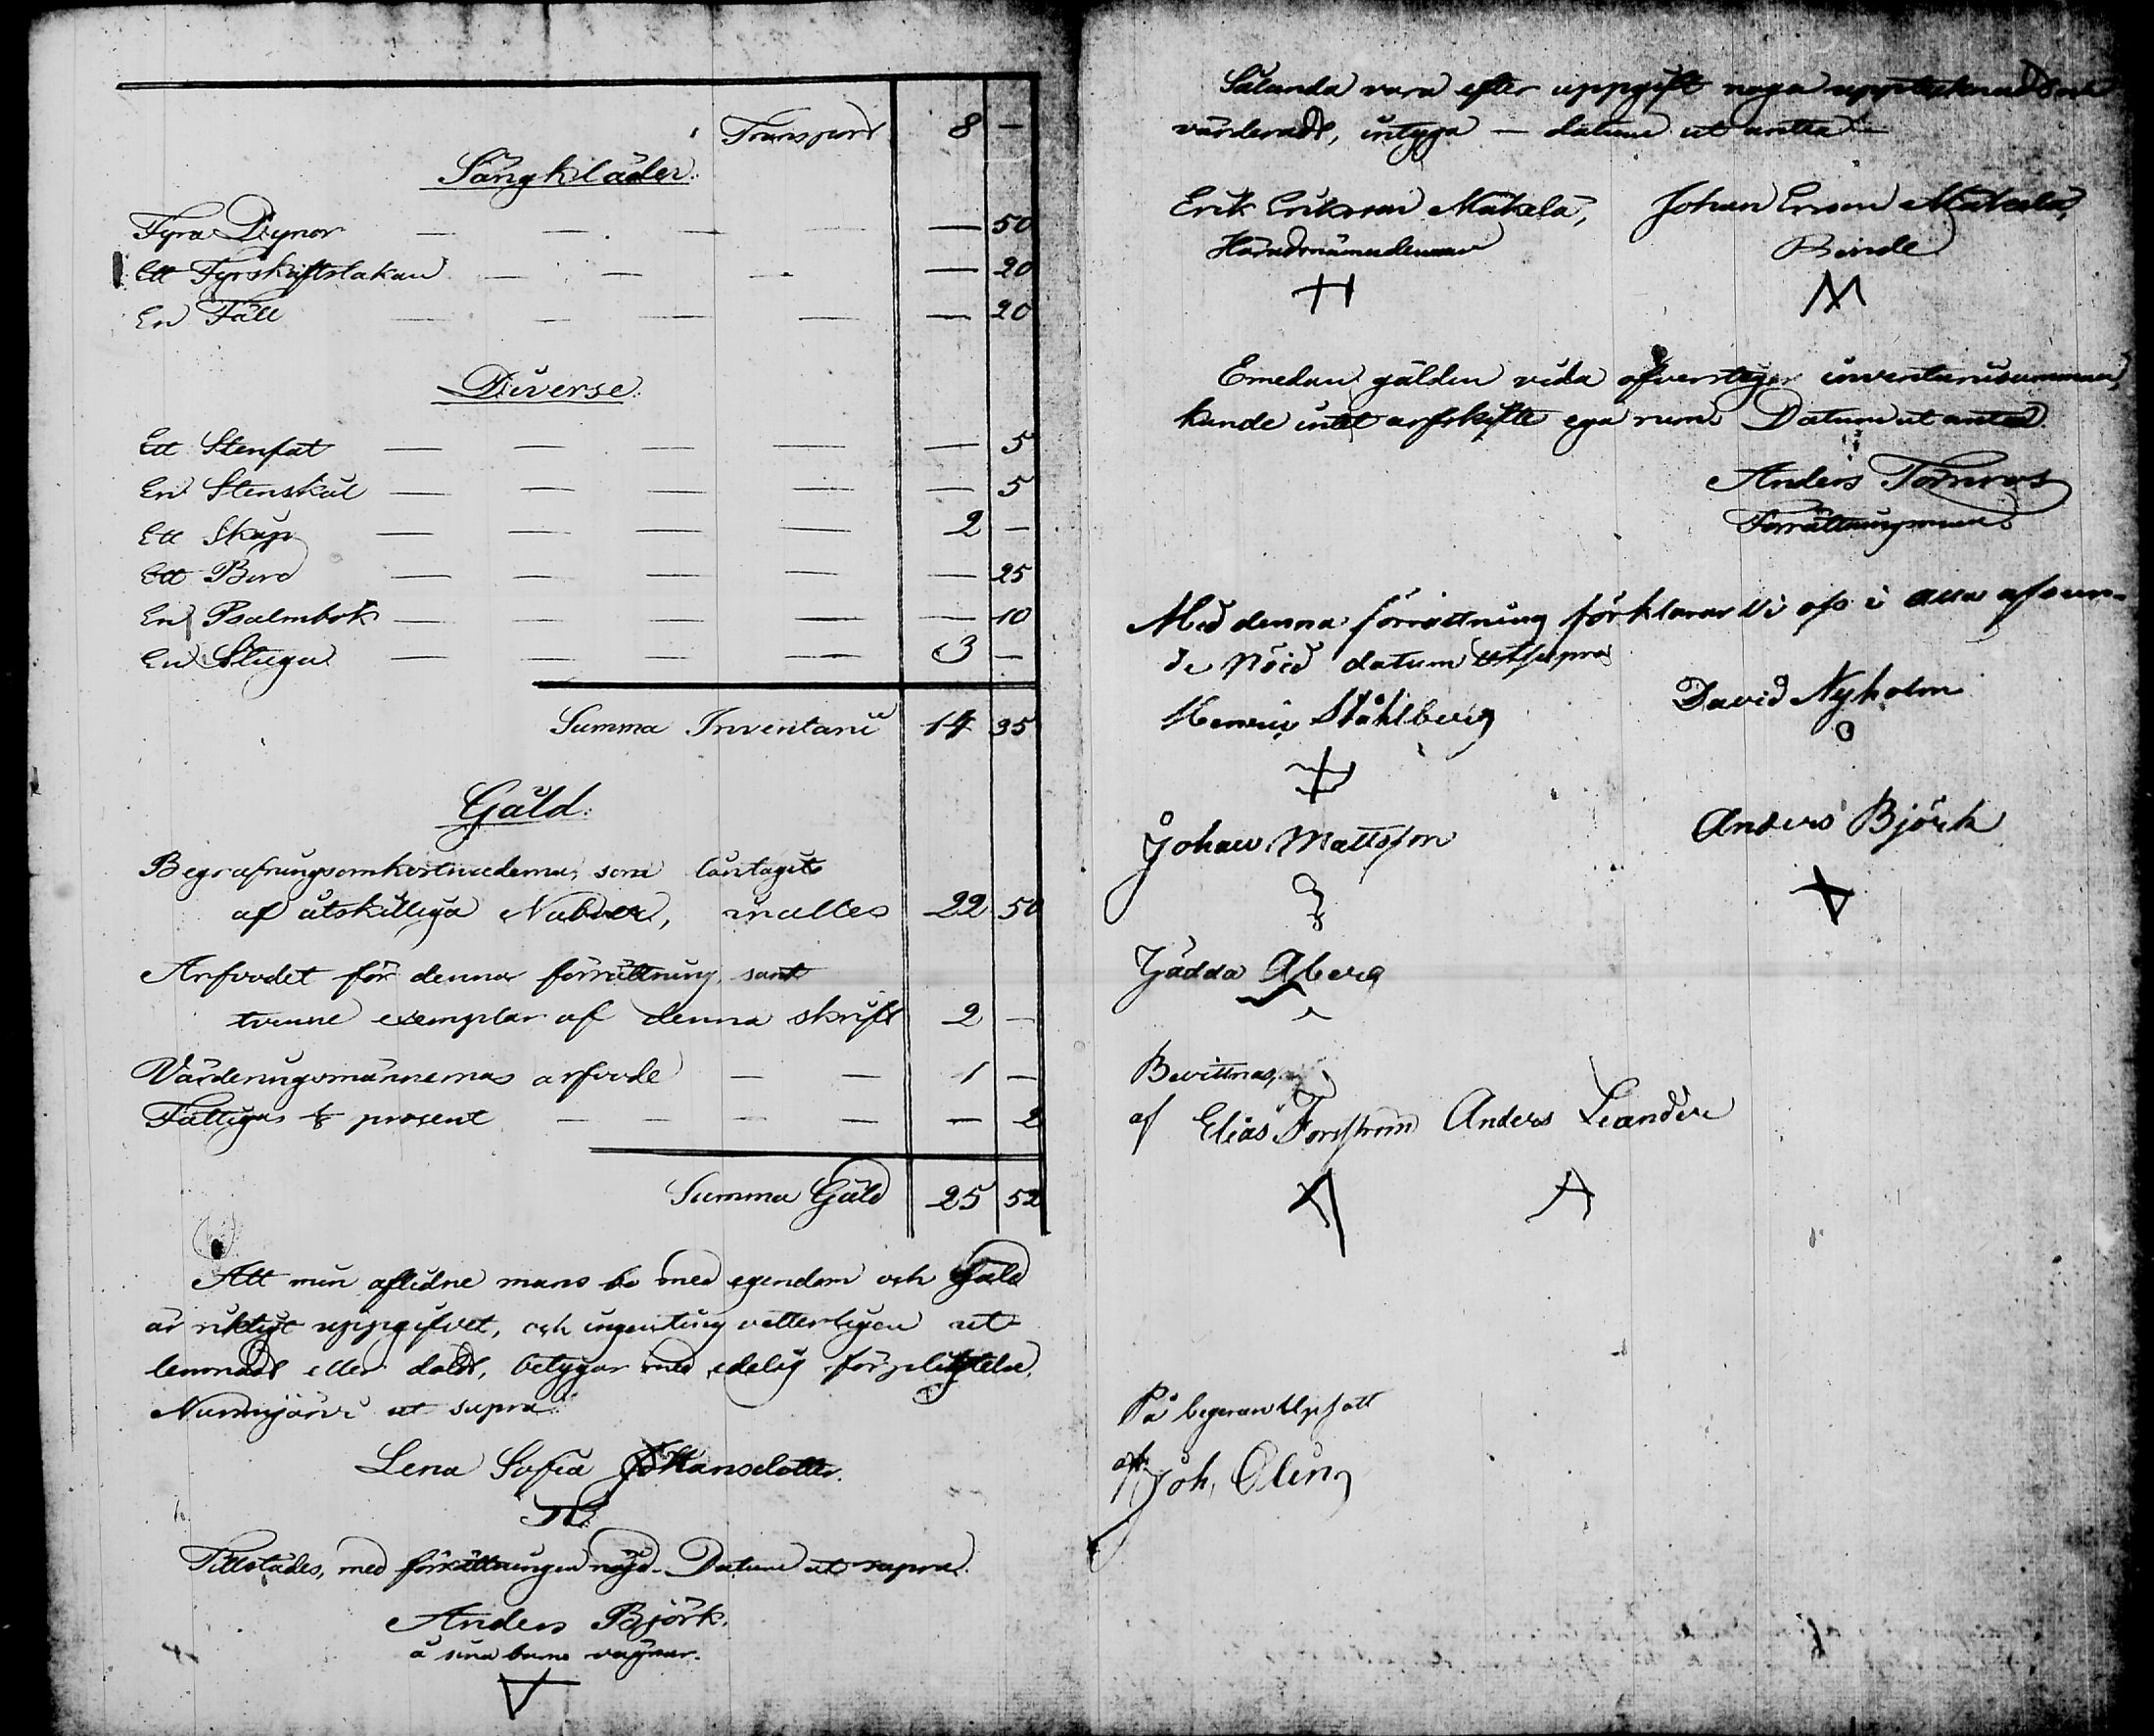 Transport 8 —
Sängkläder:
Fyra Dynor — — — — — 50
Ett Fyrskiftslakan — — — — 20
En Fäll — — — — — 20
Diverse:
Ett Stenfat — — — — — 5
En Stenskål — — — — — 5
Ett Skåp — — — — 2 —
Ett Bord — — — — — 25
En Psalmbok — — — — — 10
En Stuga — — — — 3 —
Summa Inventarii 14 35
Gäld:
Begrafningsomkostnaderna, som låntagits
af åtskilliga , inalles 22 50
Arfvodet för denna förrättning samt
tvenne exemplar af denna skrift 2 —
Värderingsmännernas arfvode — — 1 —
Fattigas 1/8 prosent — — — — — 2
Summa Gäld 25 52
Att min aflidne mans bo med egendom och gäld
är riktigt uppgifvet, och ingenting vetterligen ut-
lemnadt eller doldt, betygar med edelig förpligtelse.
ut supra.
Lena Sofia Hansdotter.
Tillstädes, med förrättningen nöjd. Datum ut supra.
Anders Björk.
å sina barns vägnar.
Sålunda vara efter uppgift noga upptecknadt och
värderadt, intyga — datum ut antea
Erik Eriksson Mäkelä, Johan Ersson Mäkelä,
Häradsnämndeman Bonde
Emedan gälden vida öfverstiger inventariisumman,
kunde intet arfskifte ega rum. Datum ut antea.
Anders Törnroos
Förrättningsman.
Med denna förrättning förklarar Vi oss i alla afseen-
de Nöid datum ut supra
Henric Ståhlberg David Nyholm
Johan Mattsson Anders Björk
Jädda Åberg
Bevittnas,
af Elias Forsström Anders Leander
På begeran Upsatt
af Joh, Oling